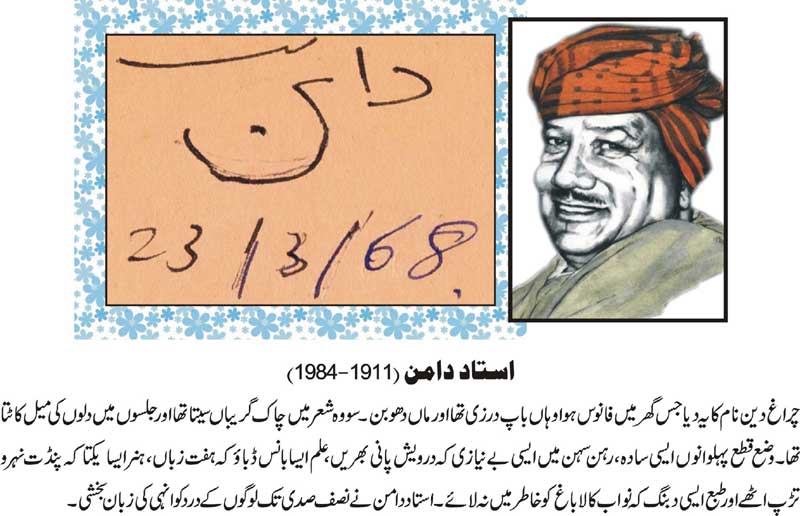 دامن
23/3/68
استاد دامن (1911-1984)
چراغ دین نام کا یہ دیا جس گھر میں فانوس ہوا وہاں باپ درزی تھا اور ماں دھوبن۔ سو وہ شعر میں چاک گریباں سیتا تھا اور جلسوں میں دلوں کی میل کاٹتا
تھا۔ وضع قطع پہلوانوں ایسی سادہ، رہن سہن میں ایسی بے نیازی کہ درویش پانی بھریں، علم ایسا بانس ڈباؤ کہ ہفت زباں، ہنر ایسا یکتا کہ پنڈت نہرو
تڑپ اٹھے اور طبع ایسی دبنگ کہ نواب کالا باغ کو خاطر میں نہ لائے۔ استاد دامن نے نصف صدی تک لوگوں کے درد کو انہی کی زبان بخشی۔